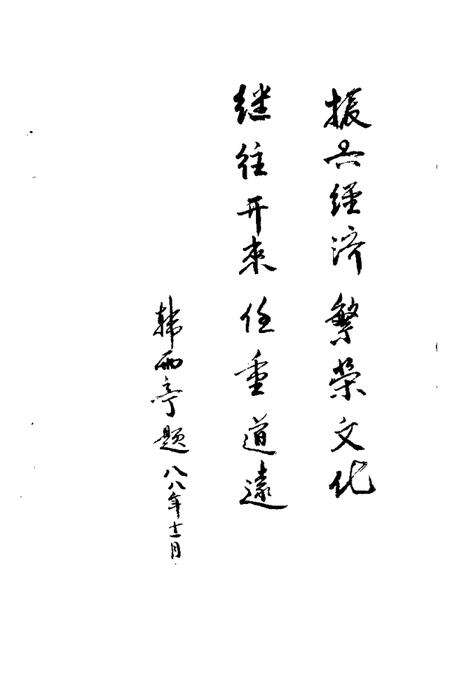 振兴经济 繁荣文化
继往开来 任重道远
韩西亭题 八八年十二月